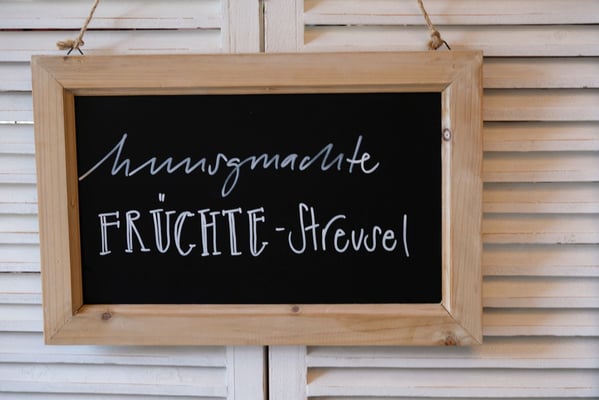 hausgmachte
FRÜCHTE-Streusel